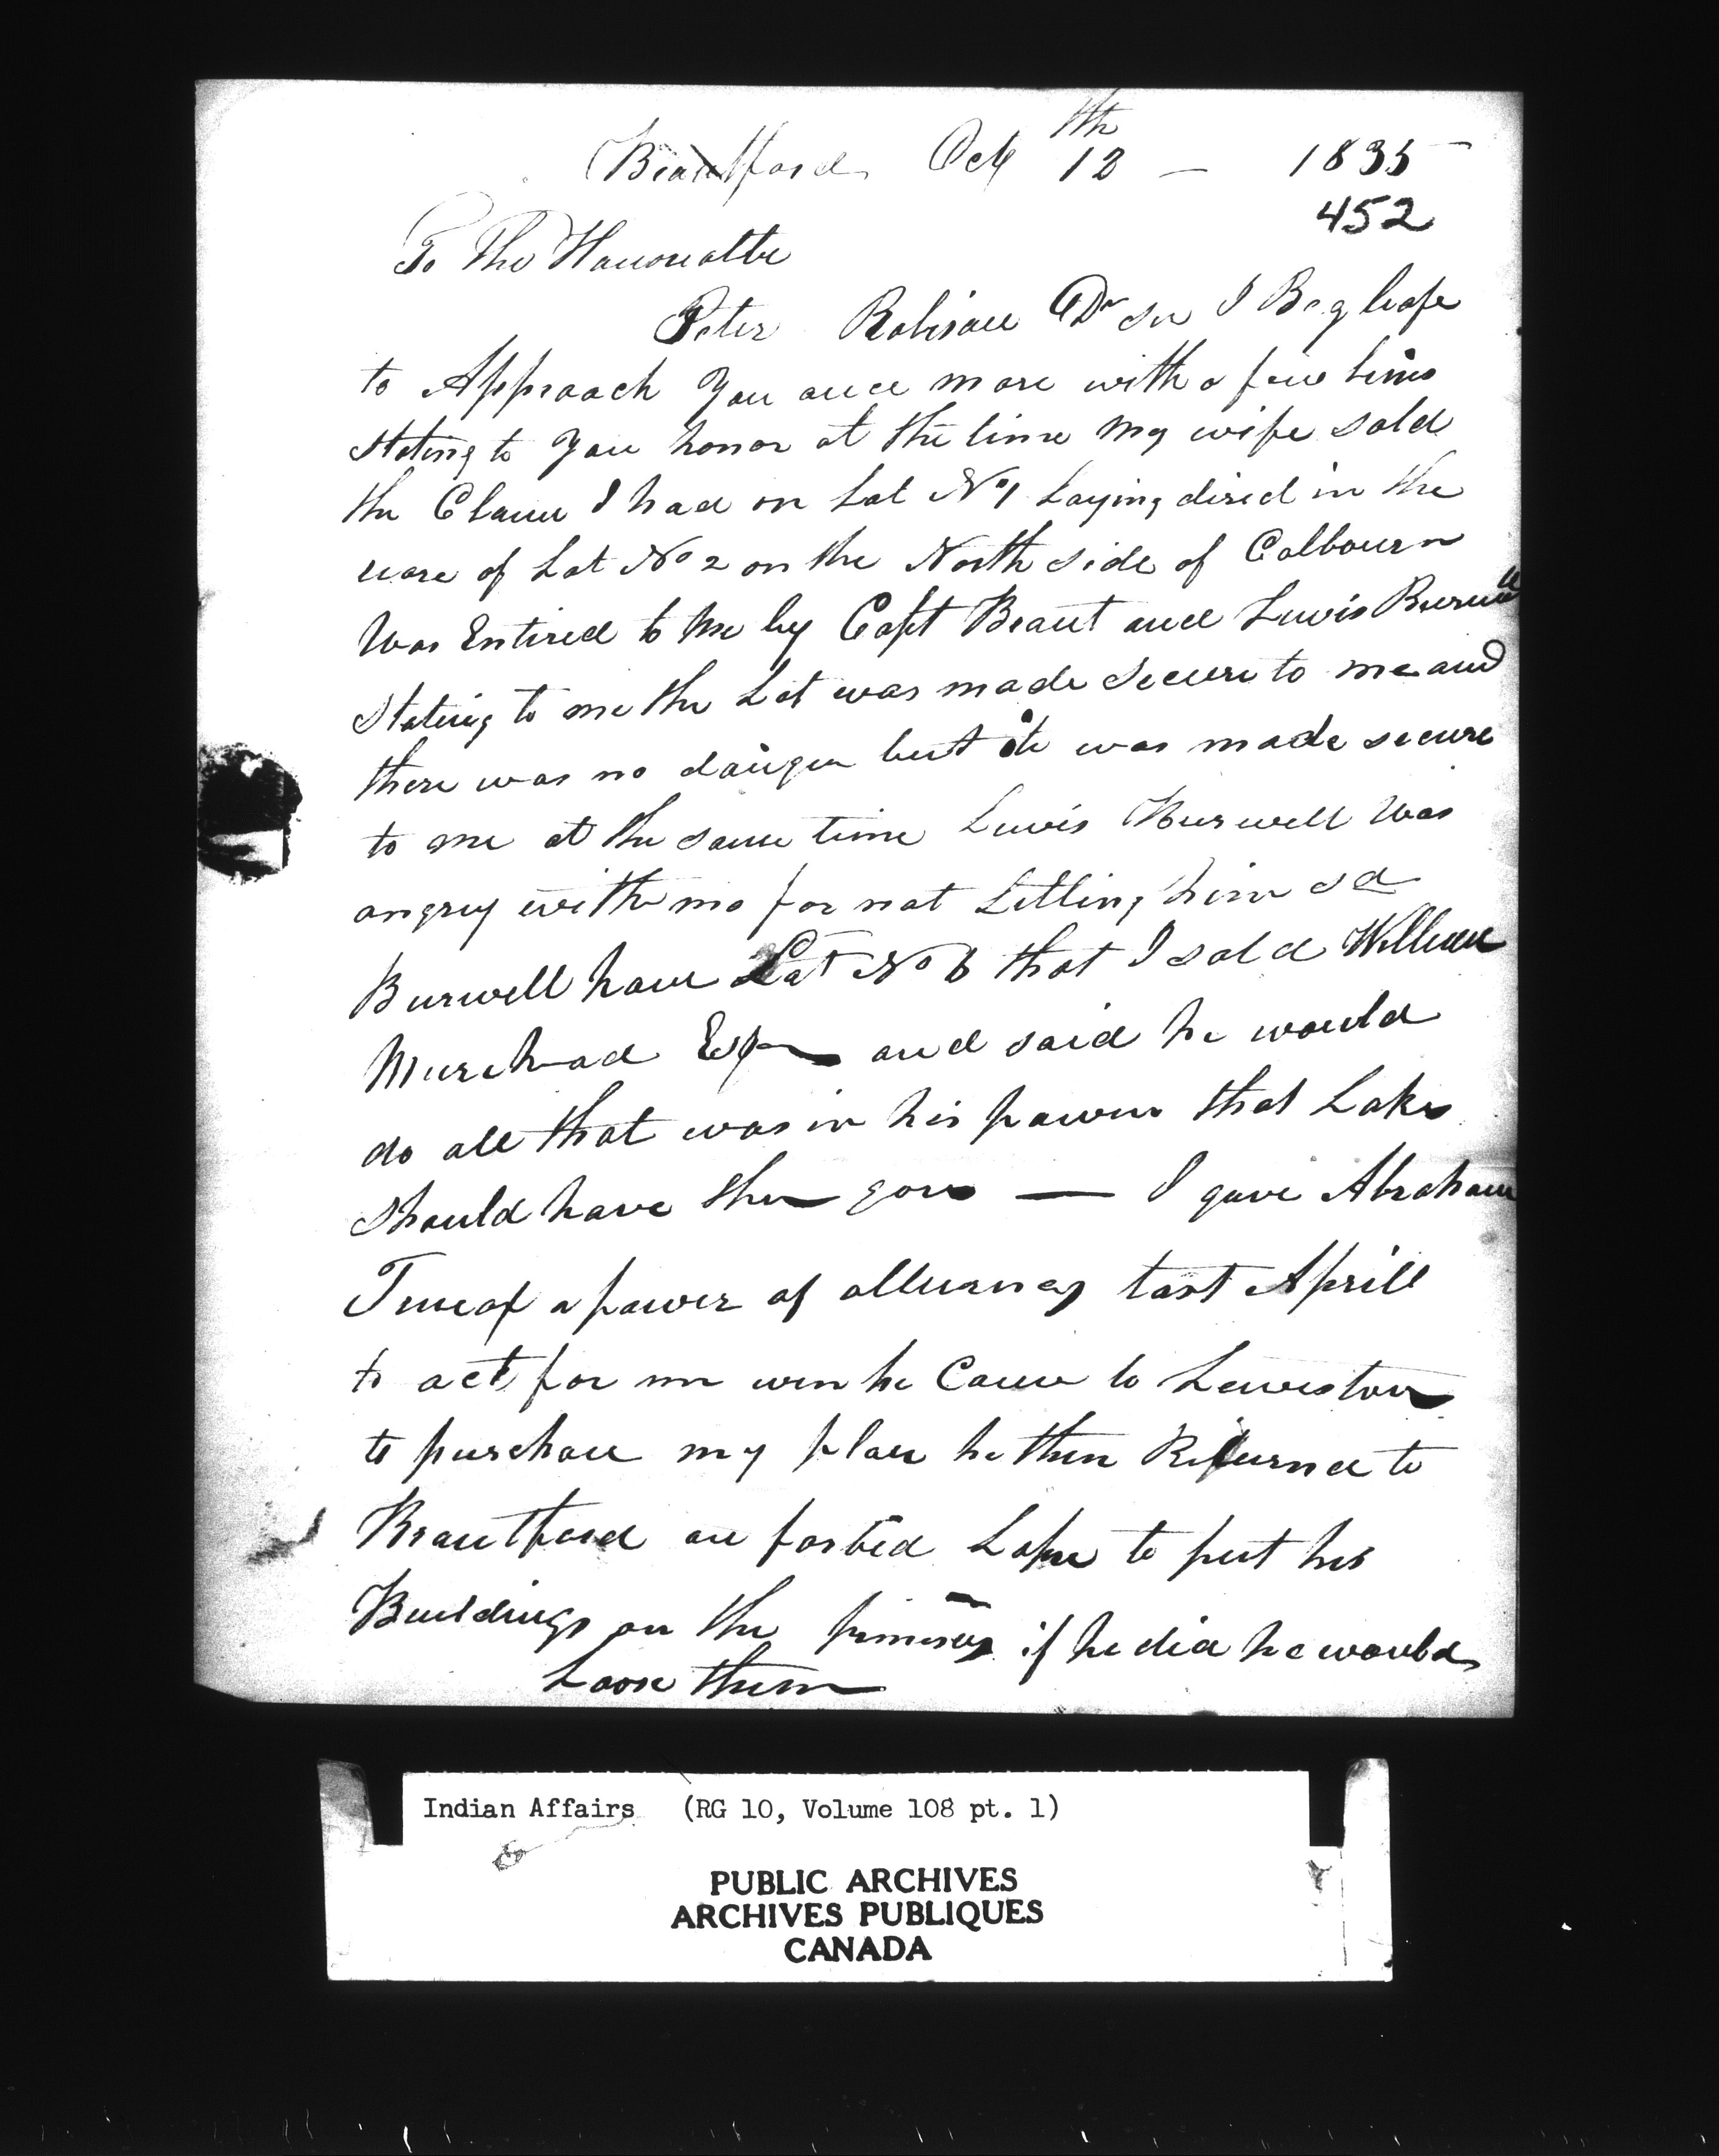 Brantford Oct 12th — 1835
452
To The Honorable
Peter Robison Dr Sir I Beg leafe
to Approach You once more with a few lines
stating to You honor at the time my wife sold
the Claim I had on Lot No 1 Laying dired in the
reare of Lot No 2 on the North Side of Colbourn
Was Entired to me by Capt Brant and Lewis Burwell
Stateing to me the Lot was made Secure to me and
there was no dainger but it was made secure
to me at the same time Lewis Burwell was
angrey with me for not Letting him
Burwell have Lot No 6 that I sold William
Murehead Esqr and said he would
do all that was in his power that Lake
Should have the gore — I gave Abraham
a power of atturney last Aprill
to act for me wen he Came to Lewiston
to purchase my place he then Returned to
Brantford an forbid Lake to put his
Buildings on the primeses if he did he would
Loose them
Indian Affairs (RG 10, Volume 108 pt. 1)
PUBLIC ARCHIVES
ARCHIVES PUBLIQUES
CANADA